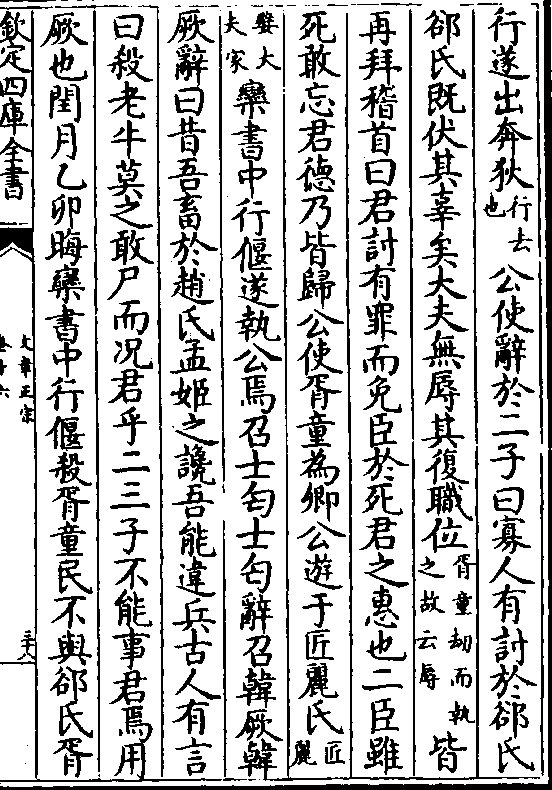 行遂出奔狄行去也公使辭於二子曰寡人有討於郤氏
郤氏既伏其辜矣大夫無辱其復職位胥童劫而執之故云辱皆
再拜稽首曰君討有罪而免臣於死君之惠也二臣雖
死敢忘君德乃皆歸公使胥童為卿公遊于匠麗氏匠麗
嬖大夫家欒書中行偃遂執公焉召士匄士匄辭召韓厥韓
厥辭曰昔吾畜於趙氏孟姬之讒吾能違兵古人有言
曰殺老牛莫之敢尸而况君乎二三子不能事君焉用
厥也閏月乙卯晦欒書中行偃殺胥童民不與郤氏胥
欽定四庫全書
文章正宗
卷十六
三十八